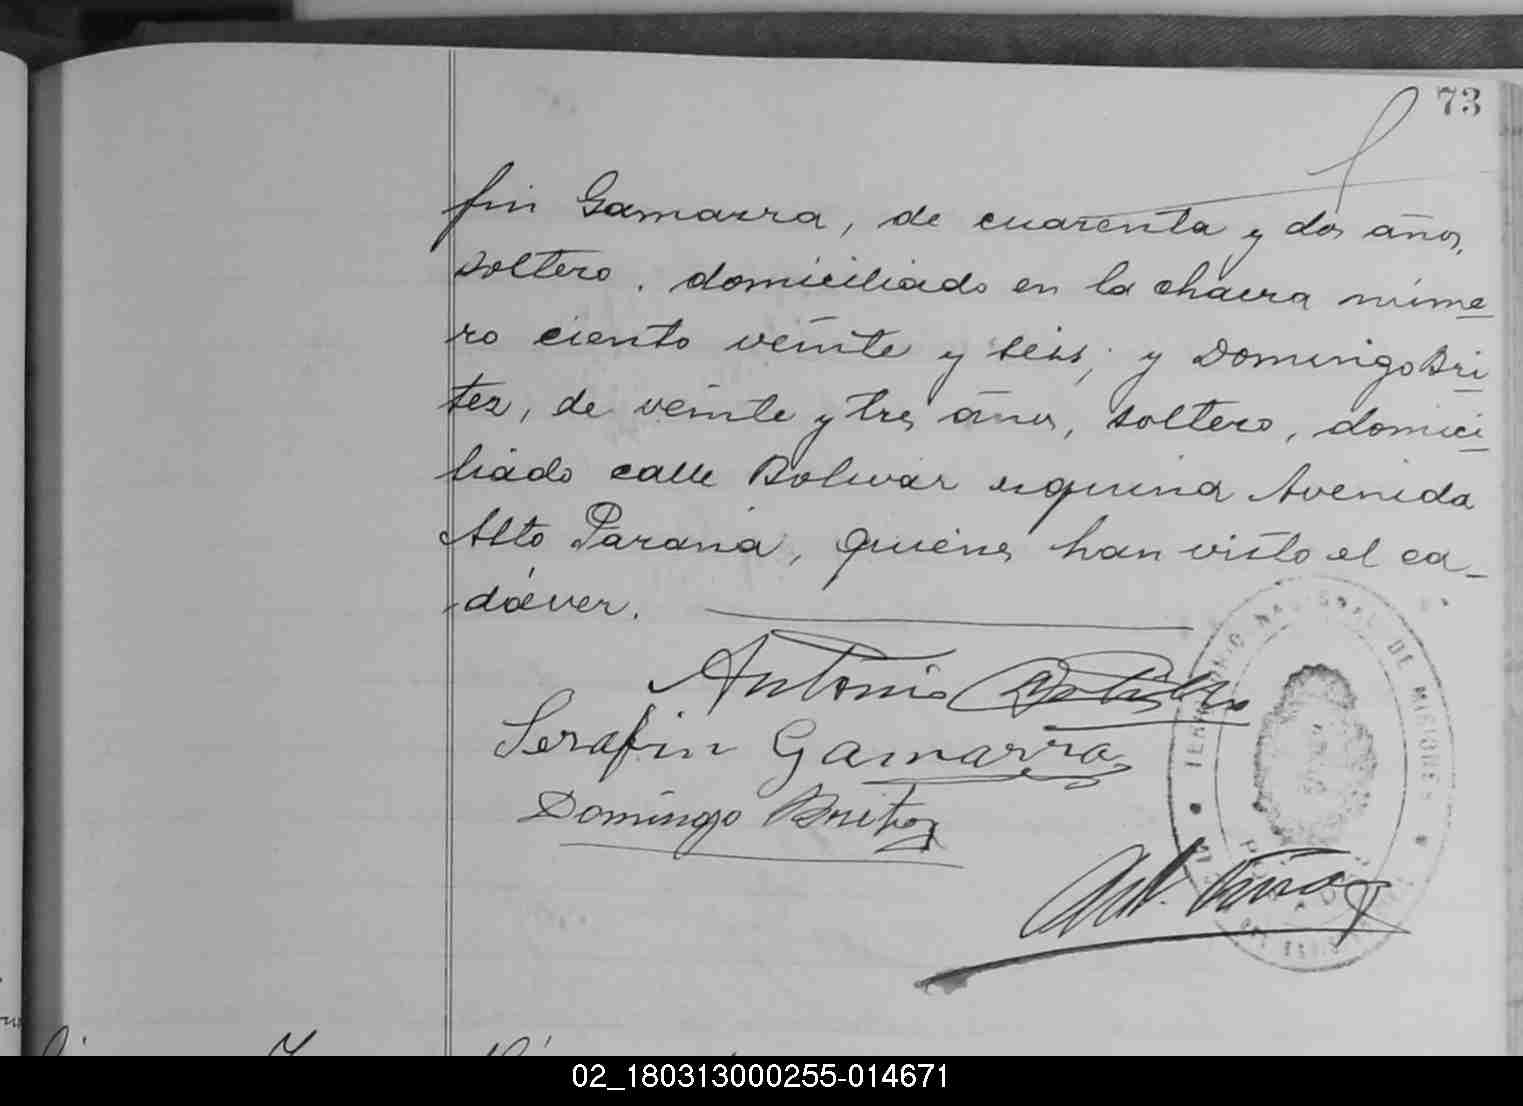 73
fin Gamarra, de cuarenta y dos años,
soltero, domiciliado en la chacra núme
ro ciento veinte y seis; y Domingo Bri
tez, de veinte y tres años, soltero, domici
liado calle Bolivar esquina Avenida
Alto Paraná, quienes han visto el ca-
dáver.
Antonio
Serafin Gamarra
Domingo Britez
TERRITORIO NACIONAL DE MISIONES
02_180313000255-014671